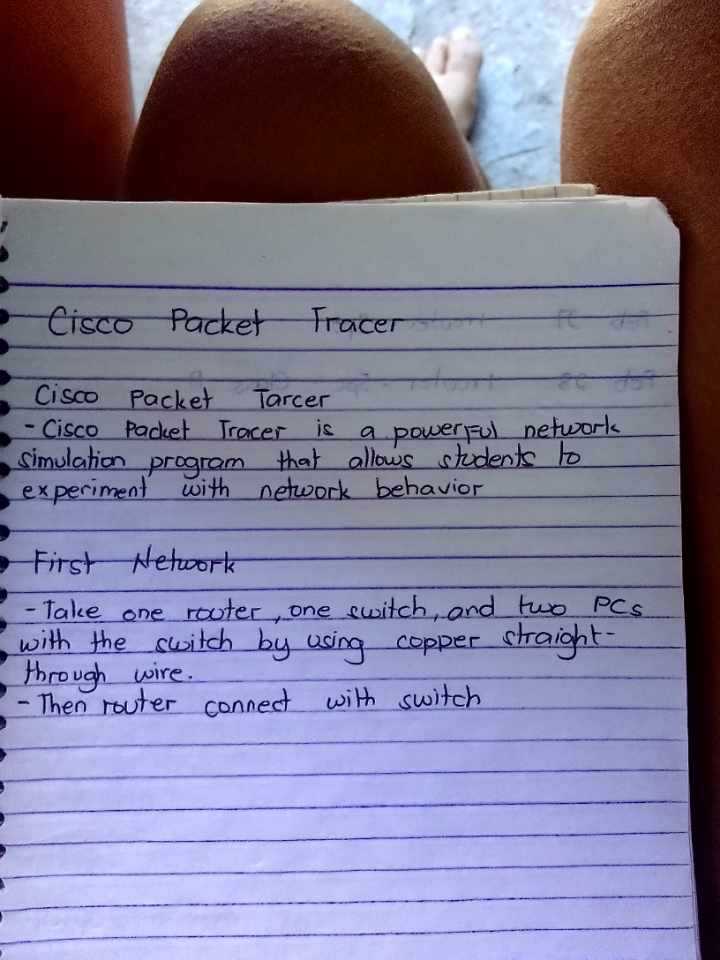 Cisco Packet Tracer
Cisco Packet Tarcer
- Cisco Packet Tracer is a powerful network
simulation program that allows students to
experiment with network behavior
First Network
- Take one router, one switch, and two PCs
with the switch by using copper straight-
through wire.
- Then router connect with switch